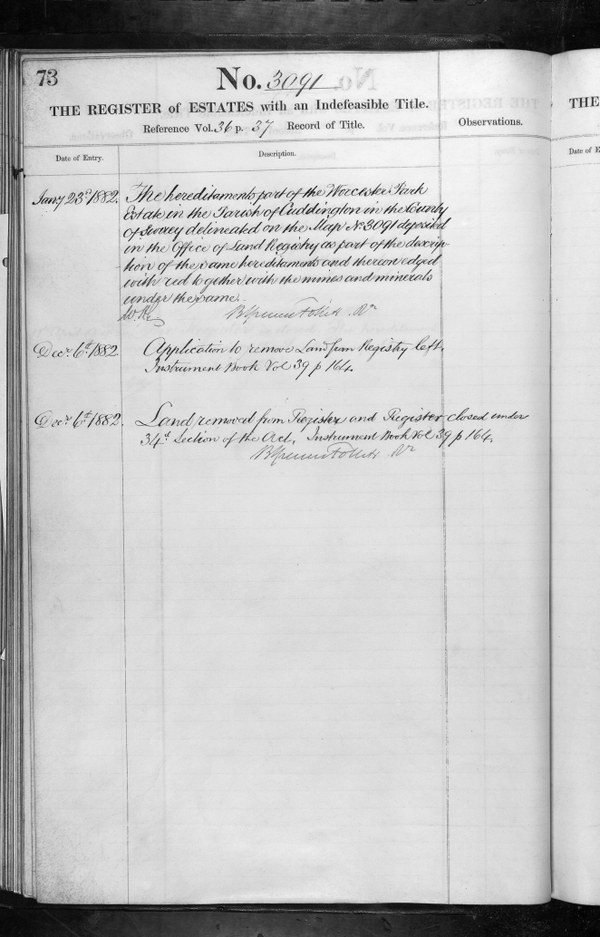 73
No. 3091
THE REGISTER of ESTATES with an Indefeasible Title.
Reference Vol. 36 p. 37 Record of Title.
Observations.
Date of Entry.
Description.
Jany 23rd 1882.
The hereditaments part of the Worcester Park
Estate in the Parish of Cuddington in the County
of Surrey delineated on the Map No. 3091 deposited
in the Office of Land Registry as part of the descrip-
tion of the same hereditaments and thereon edged
with red together with the mines and minerals
under the same.
Decr. 6th 1882
Application to remove Land from Registry left.
Instrument Book Vol 39 p 164.
Decr. 6th 1882.
Land removed from Register and Register closed under
34th Section of the Act. Instrument Book Vol 39 p 164.
THE
Date of E